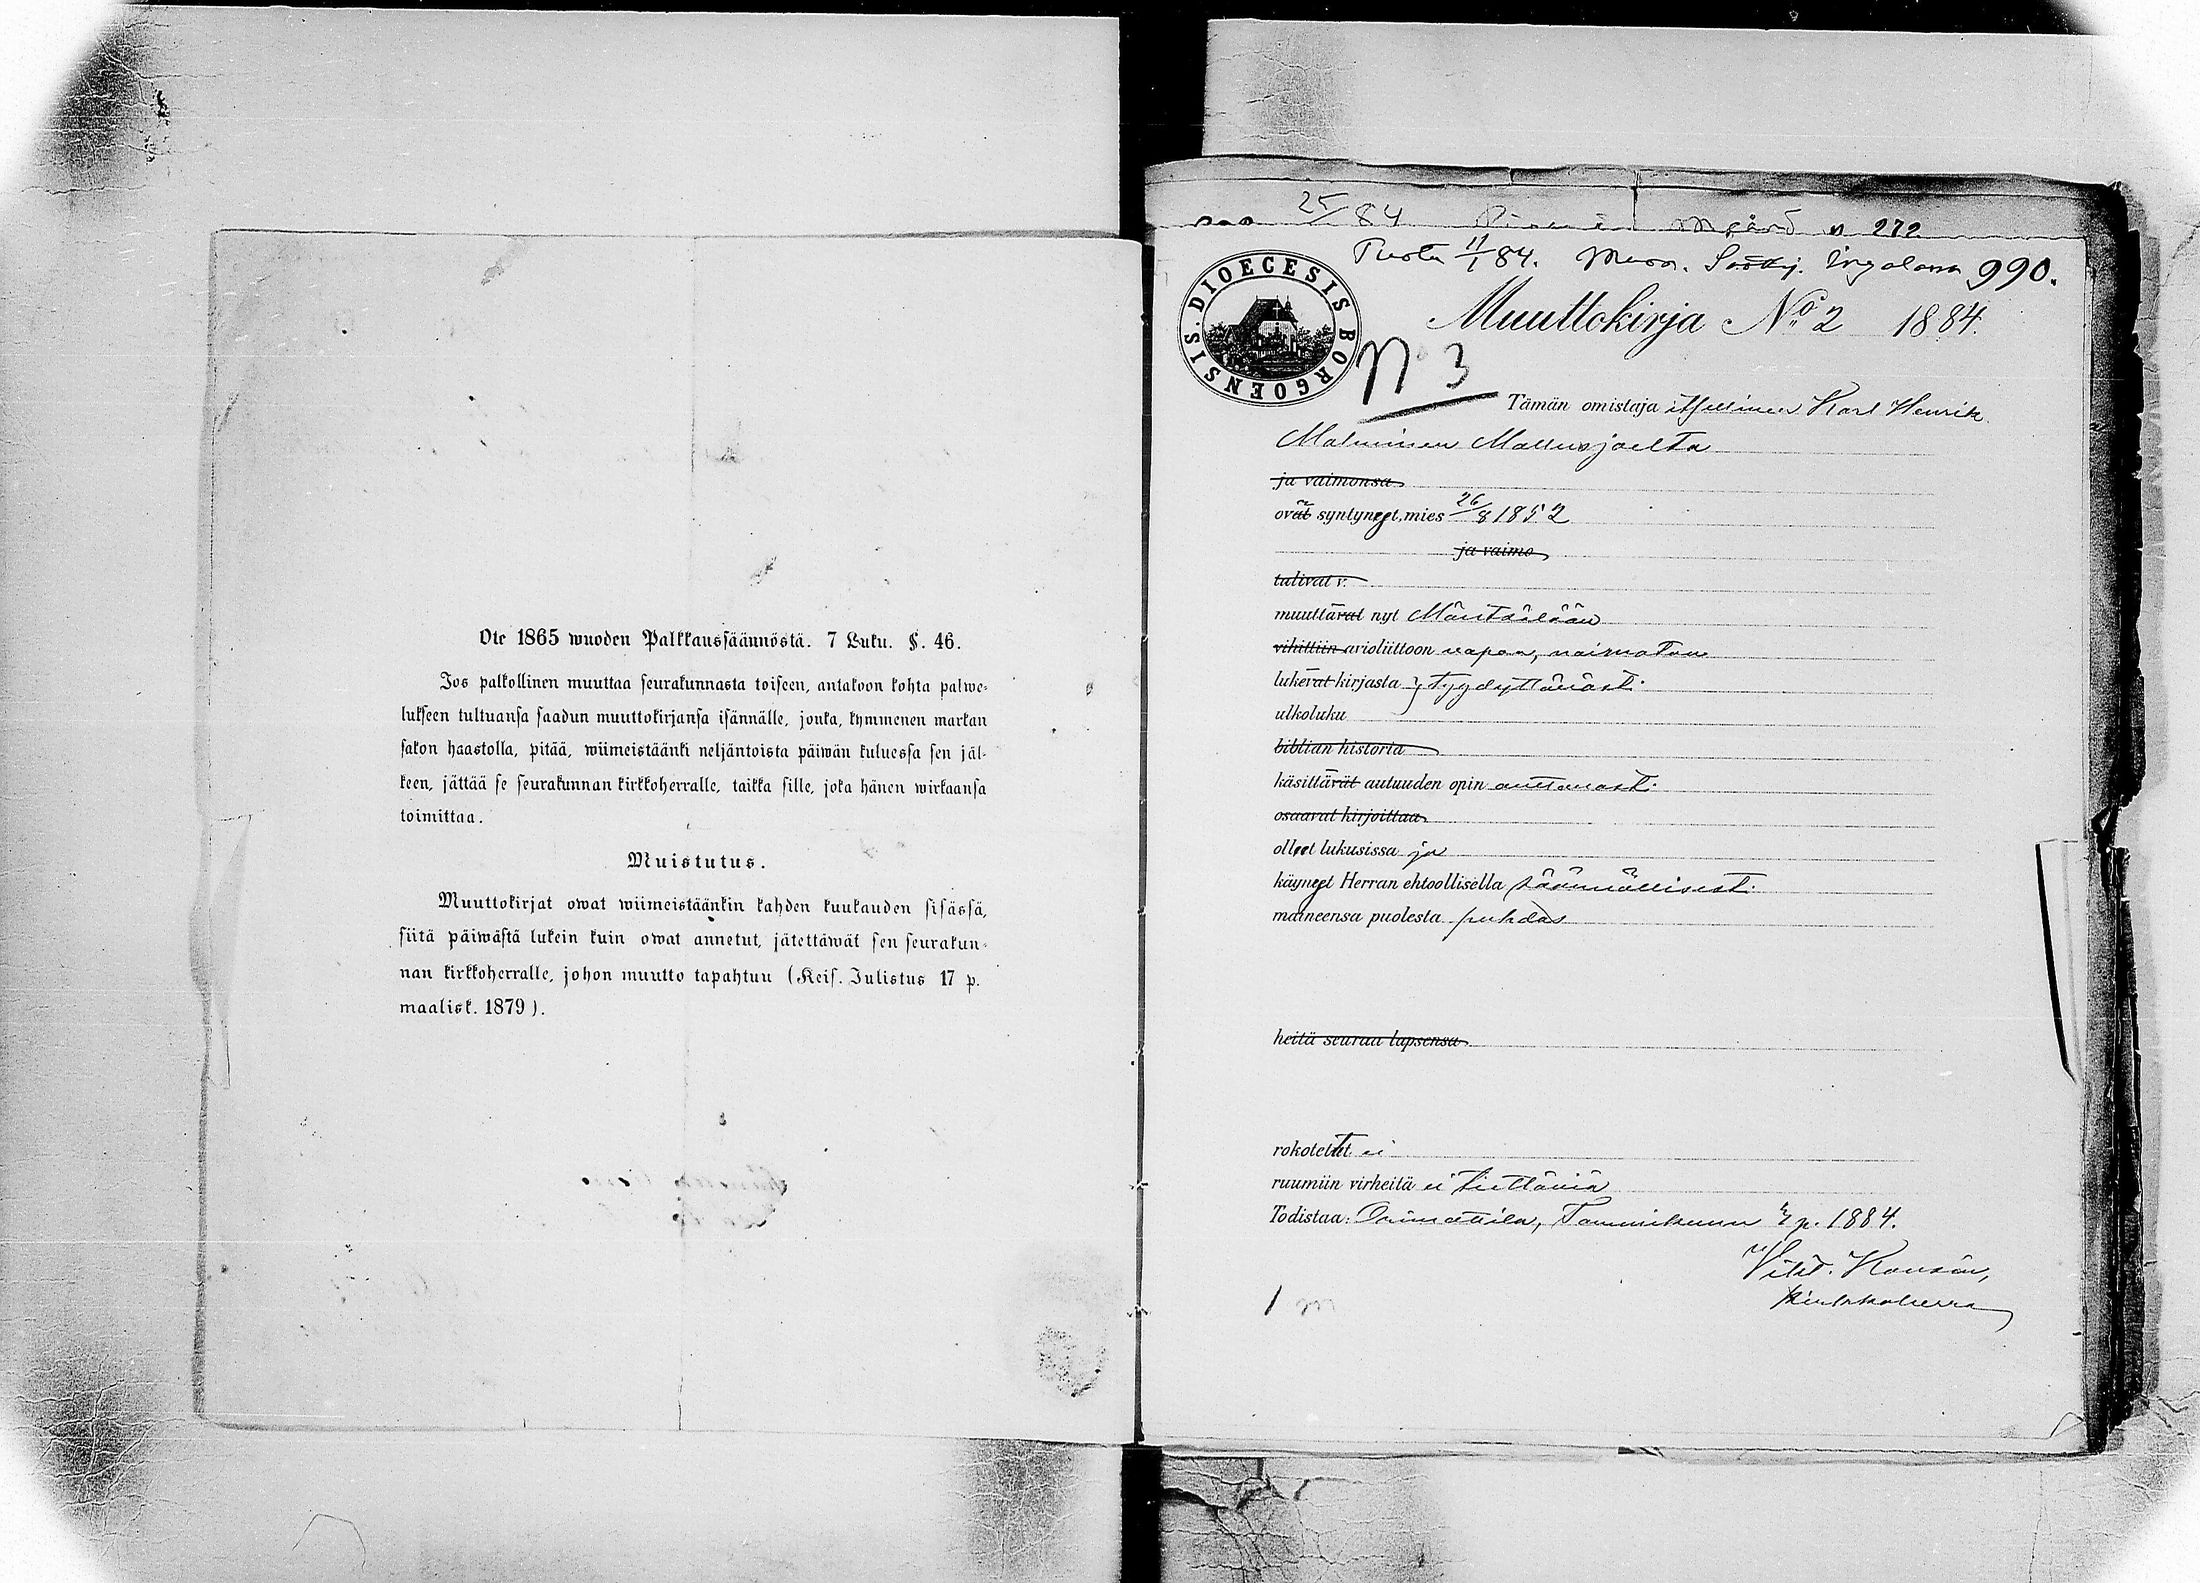 Ote 1865 wuoden Palkkaussäännöstä. 7 Luku. §. 46.
Jos palkollinen muuttaa seurakunnasta toiseen, antakoon kohta palwe-
lukseen tultuansa saadun muuttokirjansa isännälle, jonka, kymmenen markan
sakon haastolla, pitää, wiimeistäänki neljäntoista päiwän kuluessa sen jäl-
keen, jättää se seurakunnan kirkkoherralle, taikka sille, joka hänen wirkaansa
toimittaa.
Muistutus.
Muuttokirjat owat wiimeistäänkin kahden kuukauden sisässä,
siitä päiwästä lukein kuin owat annetut, jätettäwät sen seurakun-
nan kirkkoherralle, johon muutto tapahtuu (Keis. Julistus 17 p.
maalisk. 1879).
25/84 272
11/1 84. 990.
DIOECESIS BORGOENSIS.
Muuttokirja No 2 1884.
N 3
Tämän omistaja itsellinen Karl Henrik
Malminen Mallusjoelta
ja vaimonsa
ovat syntyneet, mies 26/8 1852
ja vaimo
talivat v.
muuttavat nyt Mäntsälään
vihittiin avioliittoon vapaa, naimaton
lukevat kirjasta } tyydyttäväst.
ulkoluku
biblian historia
käsittävät autuuden opin auttavast.
osaavat kirjoittaa
olleet lukusissa ja
käyneet Herran ehtoollisella säännöllisest.
maineensa puolesta puhdas
heitä seuraa lapsensa
rokotetut ei
ruumiin virheitä ei tiettäviä
Todistaa: Orimattila, Tammikuun p. 1884.
Vikt. Konsin,
kirkkoherra
1